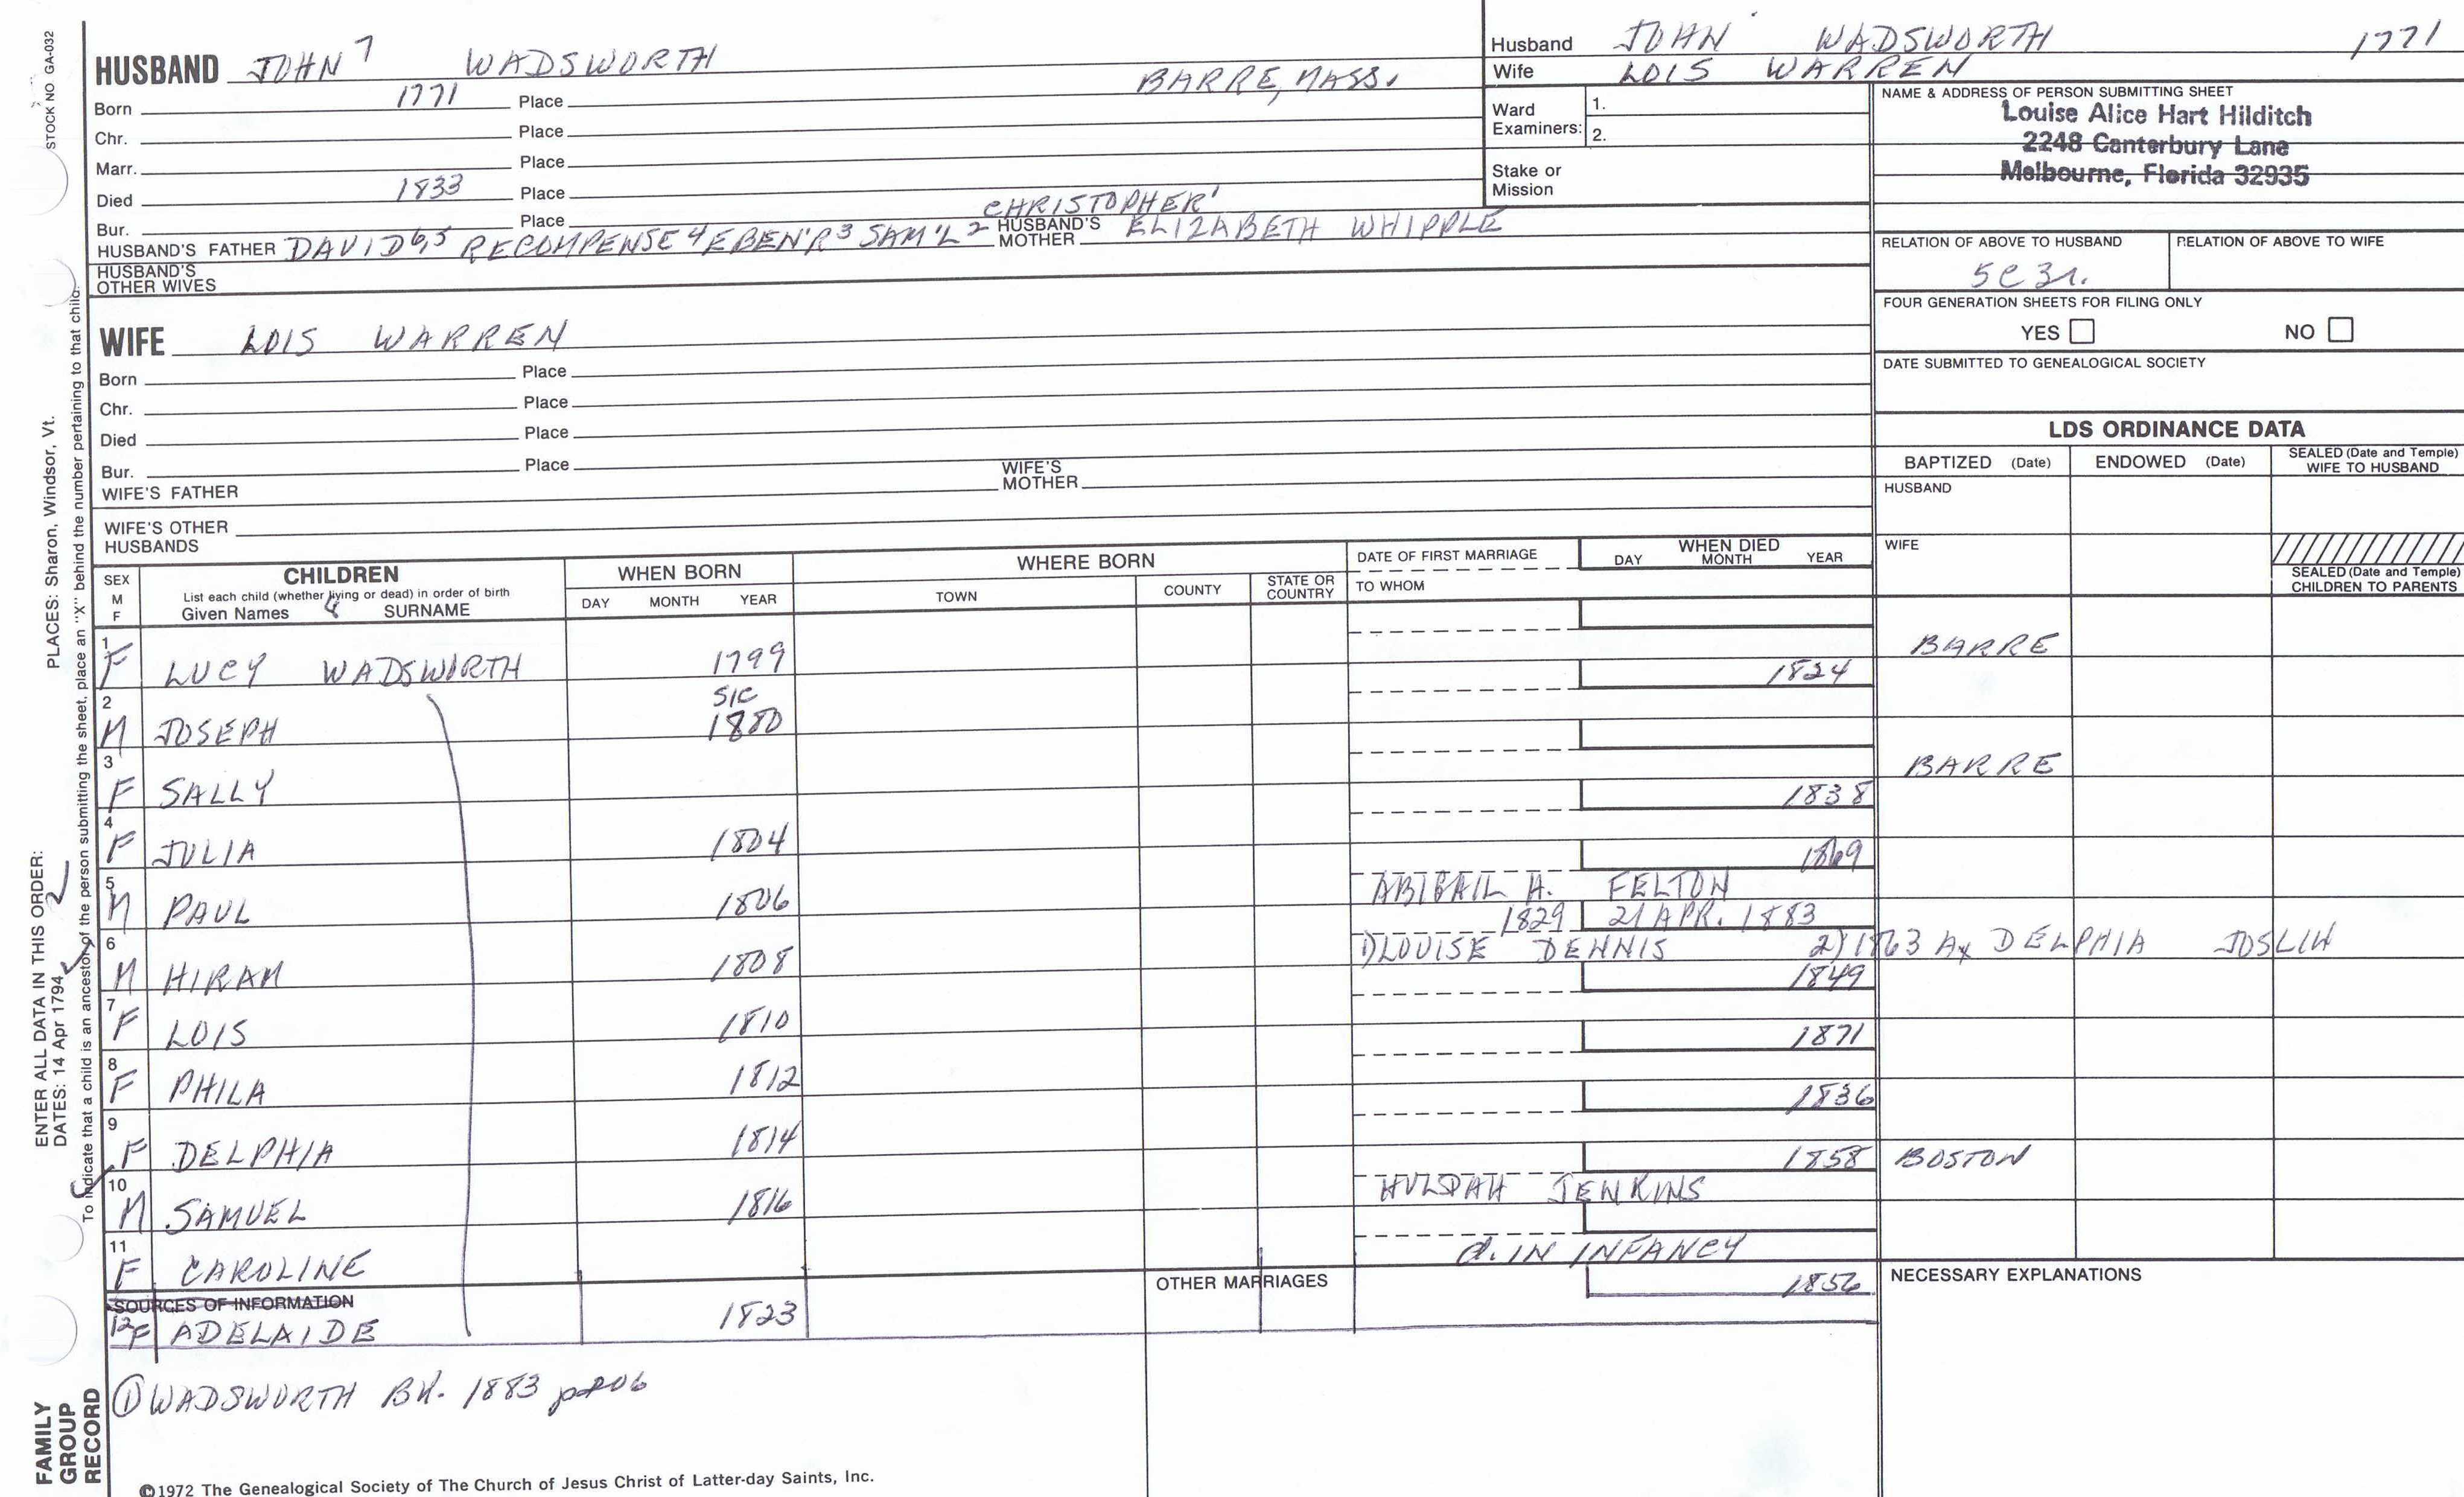 STOCK NO GA-032
HUSBAND JOHN 7 WADSWORTH
BARRE, MASS.
Born 1771 Place
Chr. Place
Marr. Place
Died 1833 Place
Bur. Place
CHRISTOPHER 1
HUSBAND'S FATHER DAVID 6,5 RECOMPENSE 4 EBEN'R 3 SAM'L 2 HUSBAND'S MOTHER ELIZABETH WHIPPLE
HUSBAND'S OTHER WIVES
WIFE LOIS WARREN
Born Place
Chr. Place
Died Place
Bur. Place
WIFE'S FATHER WIFE'S MOTHER
WIFE'S OTHER HUSBANDS
Husband JOHN WADSWORTH 1771
Wife LOIS WARREN
Ward Examiners: 1.
2.
Stake or Mission
NAME & ADDRESS OF PERSON SUBMITTING SHEET
Louise Alice Hart Hilditch
2248 Canterbury Lane
Melbourne, Florida 32935
RELATION OF ABOVE TO HUSBAND RELATION OF ABOVE TO WIFE
5C 3r.
FOUR GENERATION SHEETS FOR FILING ONLY
YES NO
DATE SUBMITTED TO GENEALOGICAL SOCIETY
LDS ORDINANCE DATA
BAPTIZED (Date) ENDOWED (Date) SEALED (Date and Temple) WIFE TO HUSBAND
HUSBAND
WIFE
SEALED (Date and Temple) CHILDREN TO PARENTS
SEX M F
CHILDREN
List each child (whether living or dead) in order of birth
Given Names SURNAME
WHEN BORN
DAY MONTH YEAR
WHERE BORN
TOWN COUNTY STATE OR COUNTRY
DATE OF FIRST MARRIAGE
TO WHOM
WHEN DIED
DAY MONTH YEAR
1 F LUCY WADSWORTH 1799 BARRE
1824
SIC
2 M JOSEPH 1880
3 F SALLY BARRE
1838
4 F JULIA 1804
1869
5 M PAUL 1806 ABIGAIL H. FELTON
1829 21 APR. 1883
6 M HIRAM 1808 1) LOUISE DENNIS 2) 1863 DELPHIA JOSLIN
1849
7 F LOIS 1810
1871
8 F PHILA 1812
1836
9 F DELPHIA 1814
1858 BOSTON
10 M SAMUEL 1816 HULDAH JENKINS
11 F CAROLINE d. IN INFANCY
SOURCES OF INFORMATION OTHER MARRIAGES 1856 NECESSARY EXPLANATIONS
12 F ADELAIDE 1823
① WADSWORTH BK. 1883 p206
©1972 The Genealogical Society of The Church of Jesus Christ of Latter-day Saints, Inc.
FAMILY GROUP RECORD
ENTER ALL DATA IN THIS ORDER:
DATES: 14 Apr 1794
PLACES: Sharon, Windsor, Vt.
To indicate that a child is an ancestor of the person submitting the sheet, place an "X" behind the number pertaining to that child.